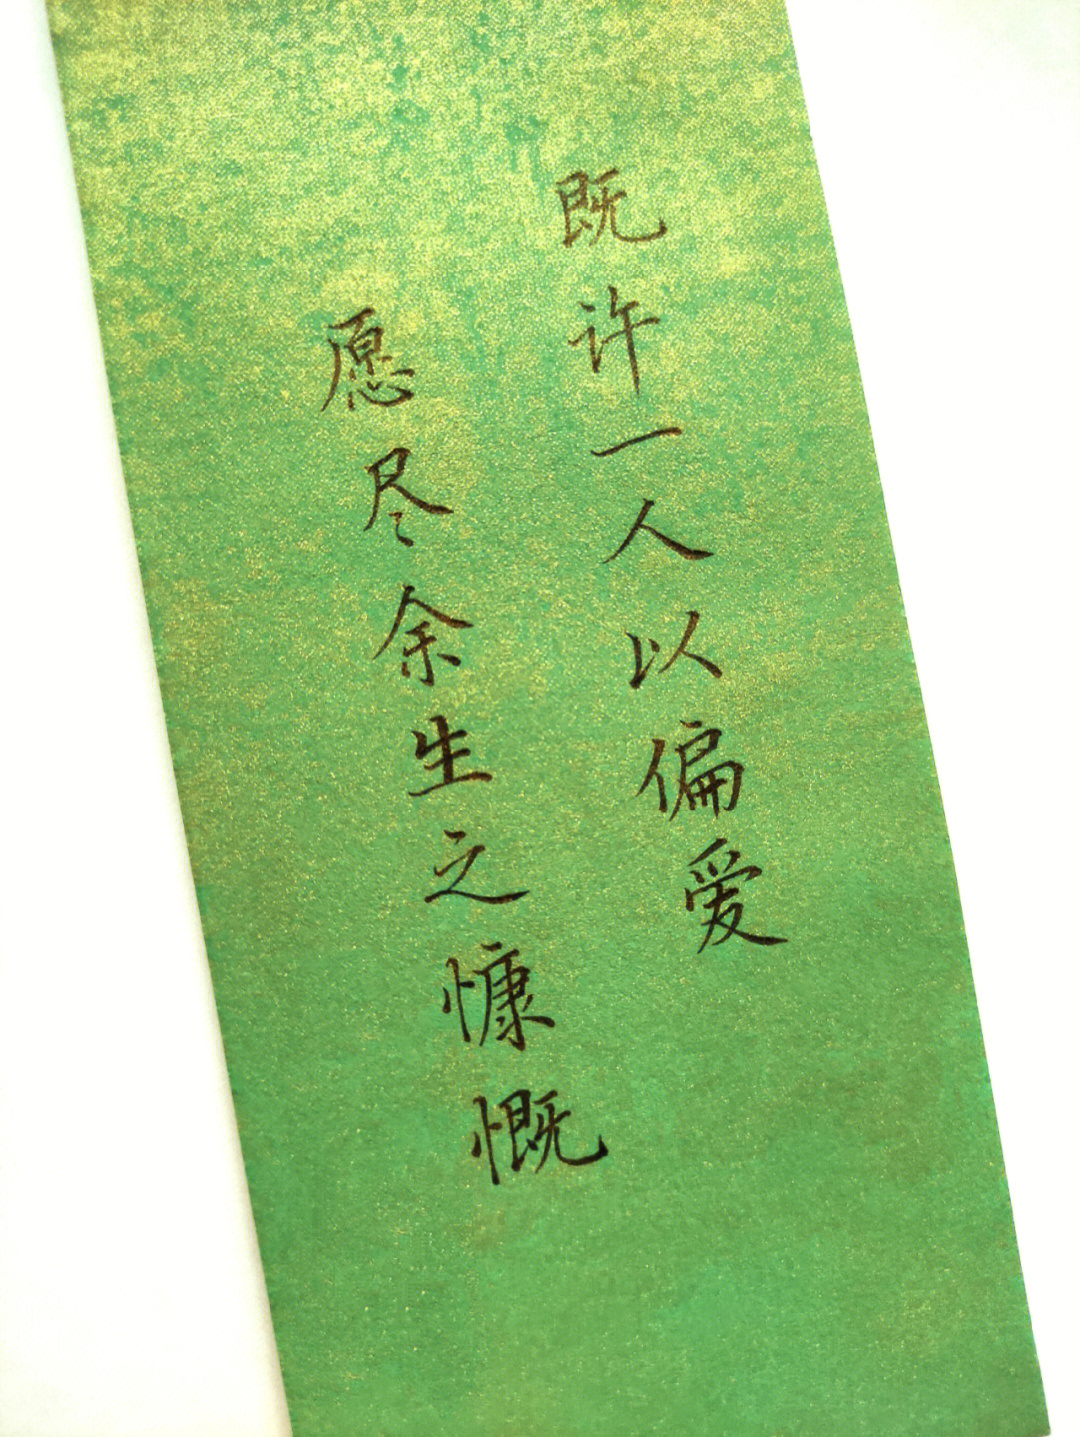 既许一人以偏爱
愿尽余生之慷慨